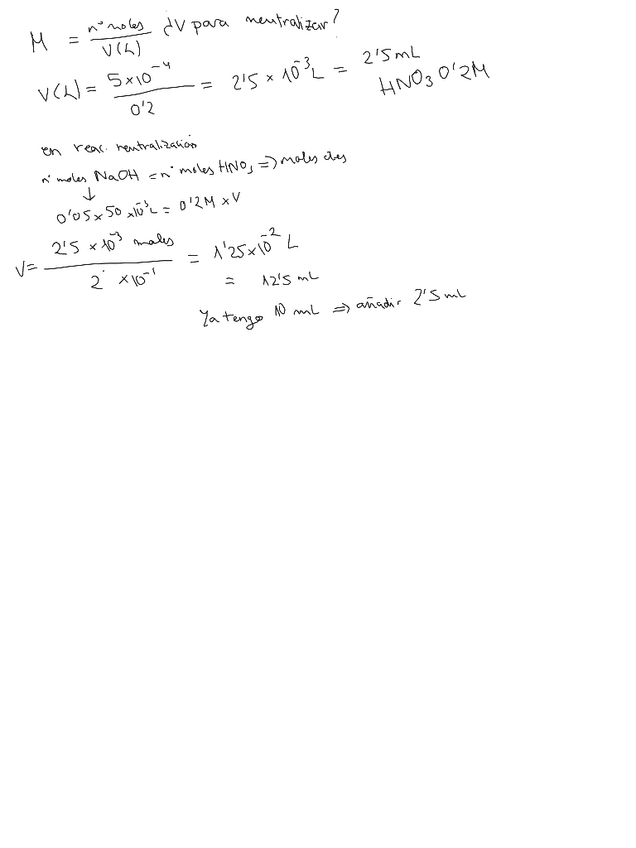 M = nº moles / V(L) ¿V para neutralizar?
V(L) = 5×10⁻⁴ / 0'2 = 2'5 × 10⁻³ L = 2'5 mL
HNO₃ 0'2M
en reac. neutralización
nº moles NaOH = nº moles HNO₃ => moles
↓
0'05 × 50 × 10⁻³ L = 0'2 M × V
V = 2'5 × 10⁻³ moles / 2 × 10⁻¹ = 1'25 × 10⁻² L
= 12'5 mL
Ya tengo 10 mL => añadir 2'5 mL